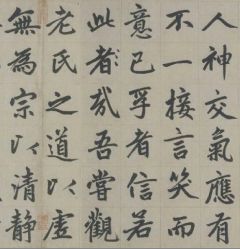 人神交氣應有
不一接言笑而
意已孚者信若
此者哉吾嘗觀
老氏之道以虛
無為宗以清静